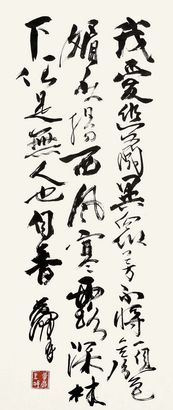 我愛幽蘭異眾芳不將顏色
媚春陽西風寒露深林
下任是無人也自香